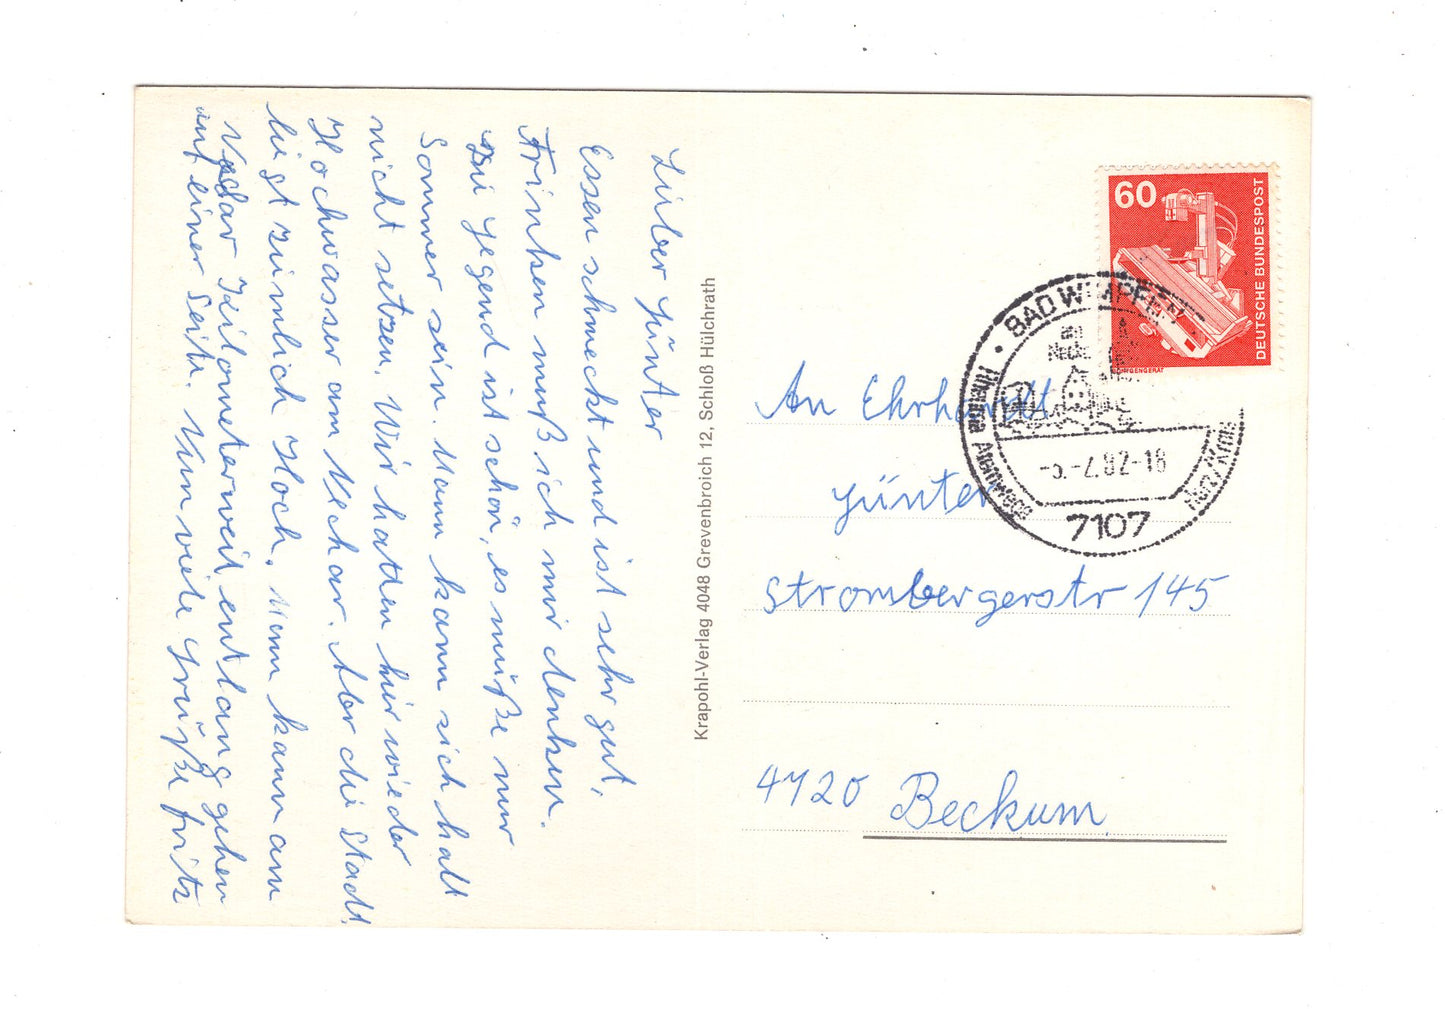 Lieber Günter
Essen schmeckt und ist sehr gut,
Trinken muß ich mir denken.
Die Gegend ist schön, es müße nur
Sommer sein. Mann kann sich halt
nicht setzen. Wir hatten hier wieder
Hochwasser am Neckar. Aber die Stadt
liegt zimlich Hoch. Menn kann am
Neckar Kilometerweit entlang gehen
auf einer Seite. Nun viele Grüße Fritz
Krapohl-Verlag 4048 Grevenbroich 12, Schloß Hülchrath
60
DEUTSCHE BUNDESPOST
BAD WIMPFEN
am
Neckar
Rheuma Atemwege
Herz/Kreislauf
-5.-2.82-18
7107
An Ehrhardt
Günter
Strombergerstr 145
4720 Beckum